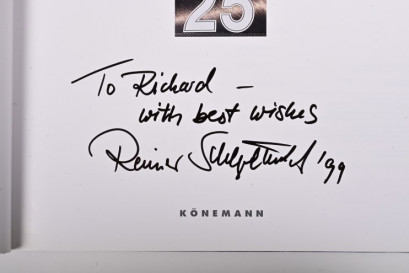 25
To Richard –
with best wishes
Rainer Schlegelmilch '99
KÖNEMANN